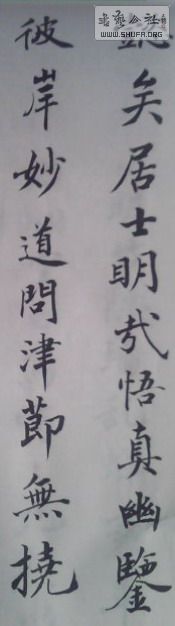 懿矣居士明哉悟真幽鑒
彼岸妙道問津節無撓
书艺公社
WWW.SHUFA.ORG